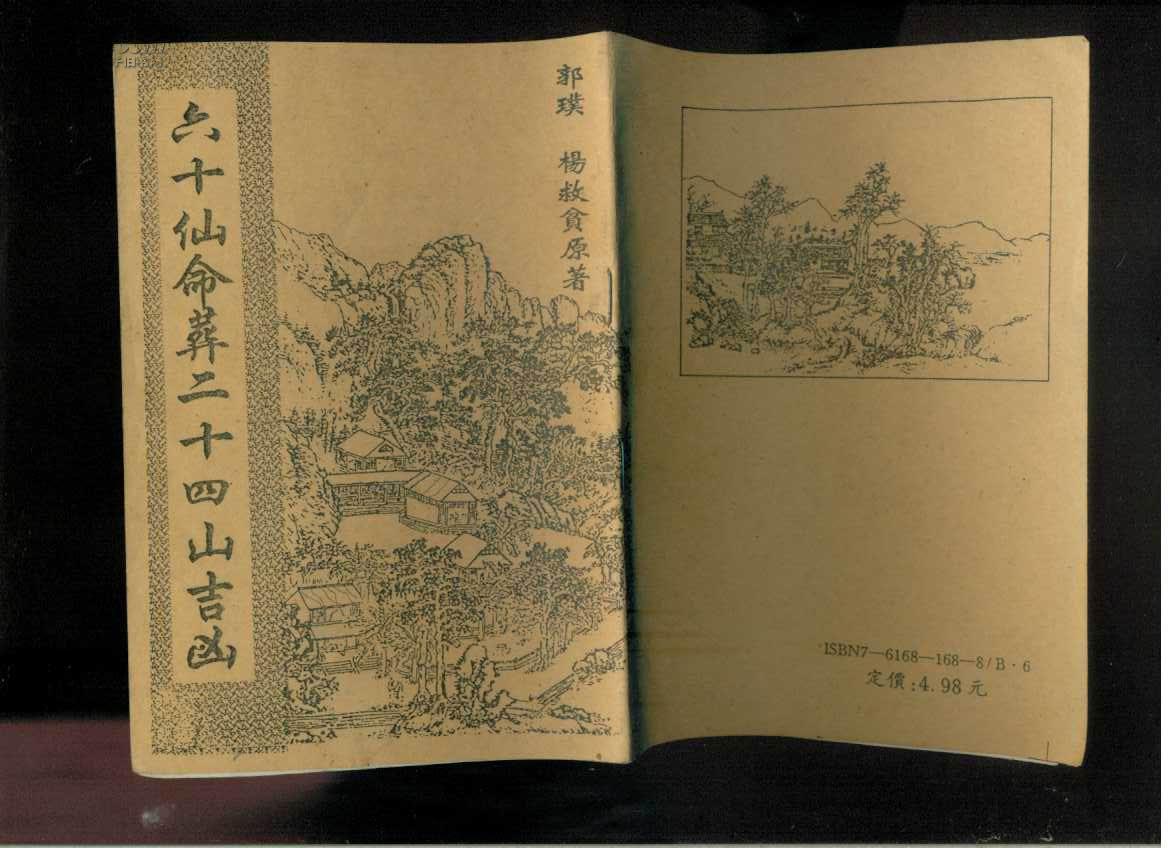 六十仙命葬二十四山吉凶
郭璞 楊救貧原著
ISBN7—6168—168—8/B·6
定價:4.98元